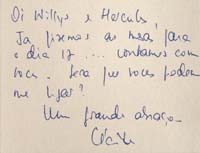 Oi Willys e Hercules,
Ja fizemos as para
o dia 17 .... contamos com
voces. Sera que voces podem
me ligar?
Um grande abraço